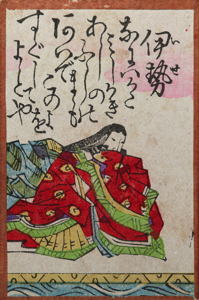 伊勢
いせ
なにはが
たみじかき
あしのふしの
まも
あはで
このよを
すぐして
よとや